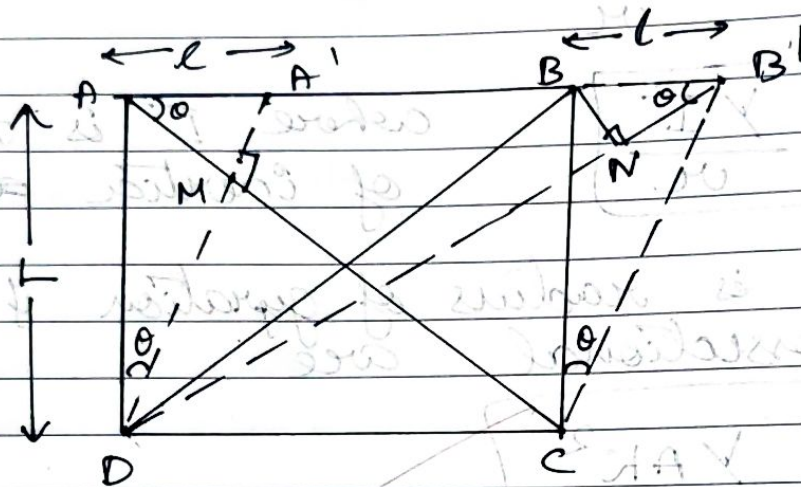 l l
A θ A' B θ B'
M N
L
θ θ
D C